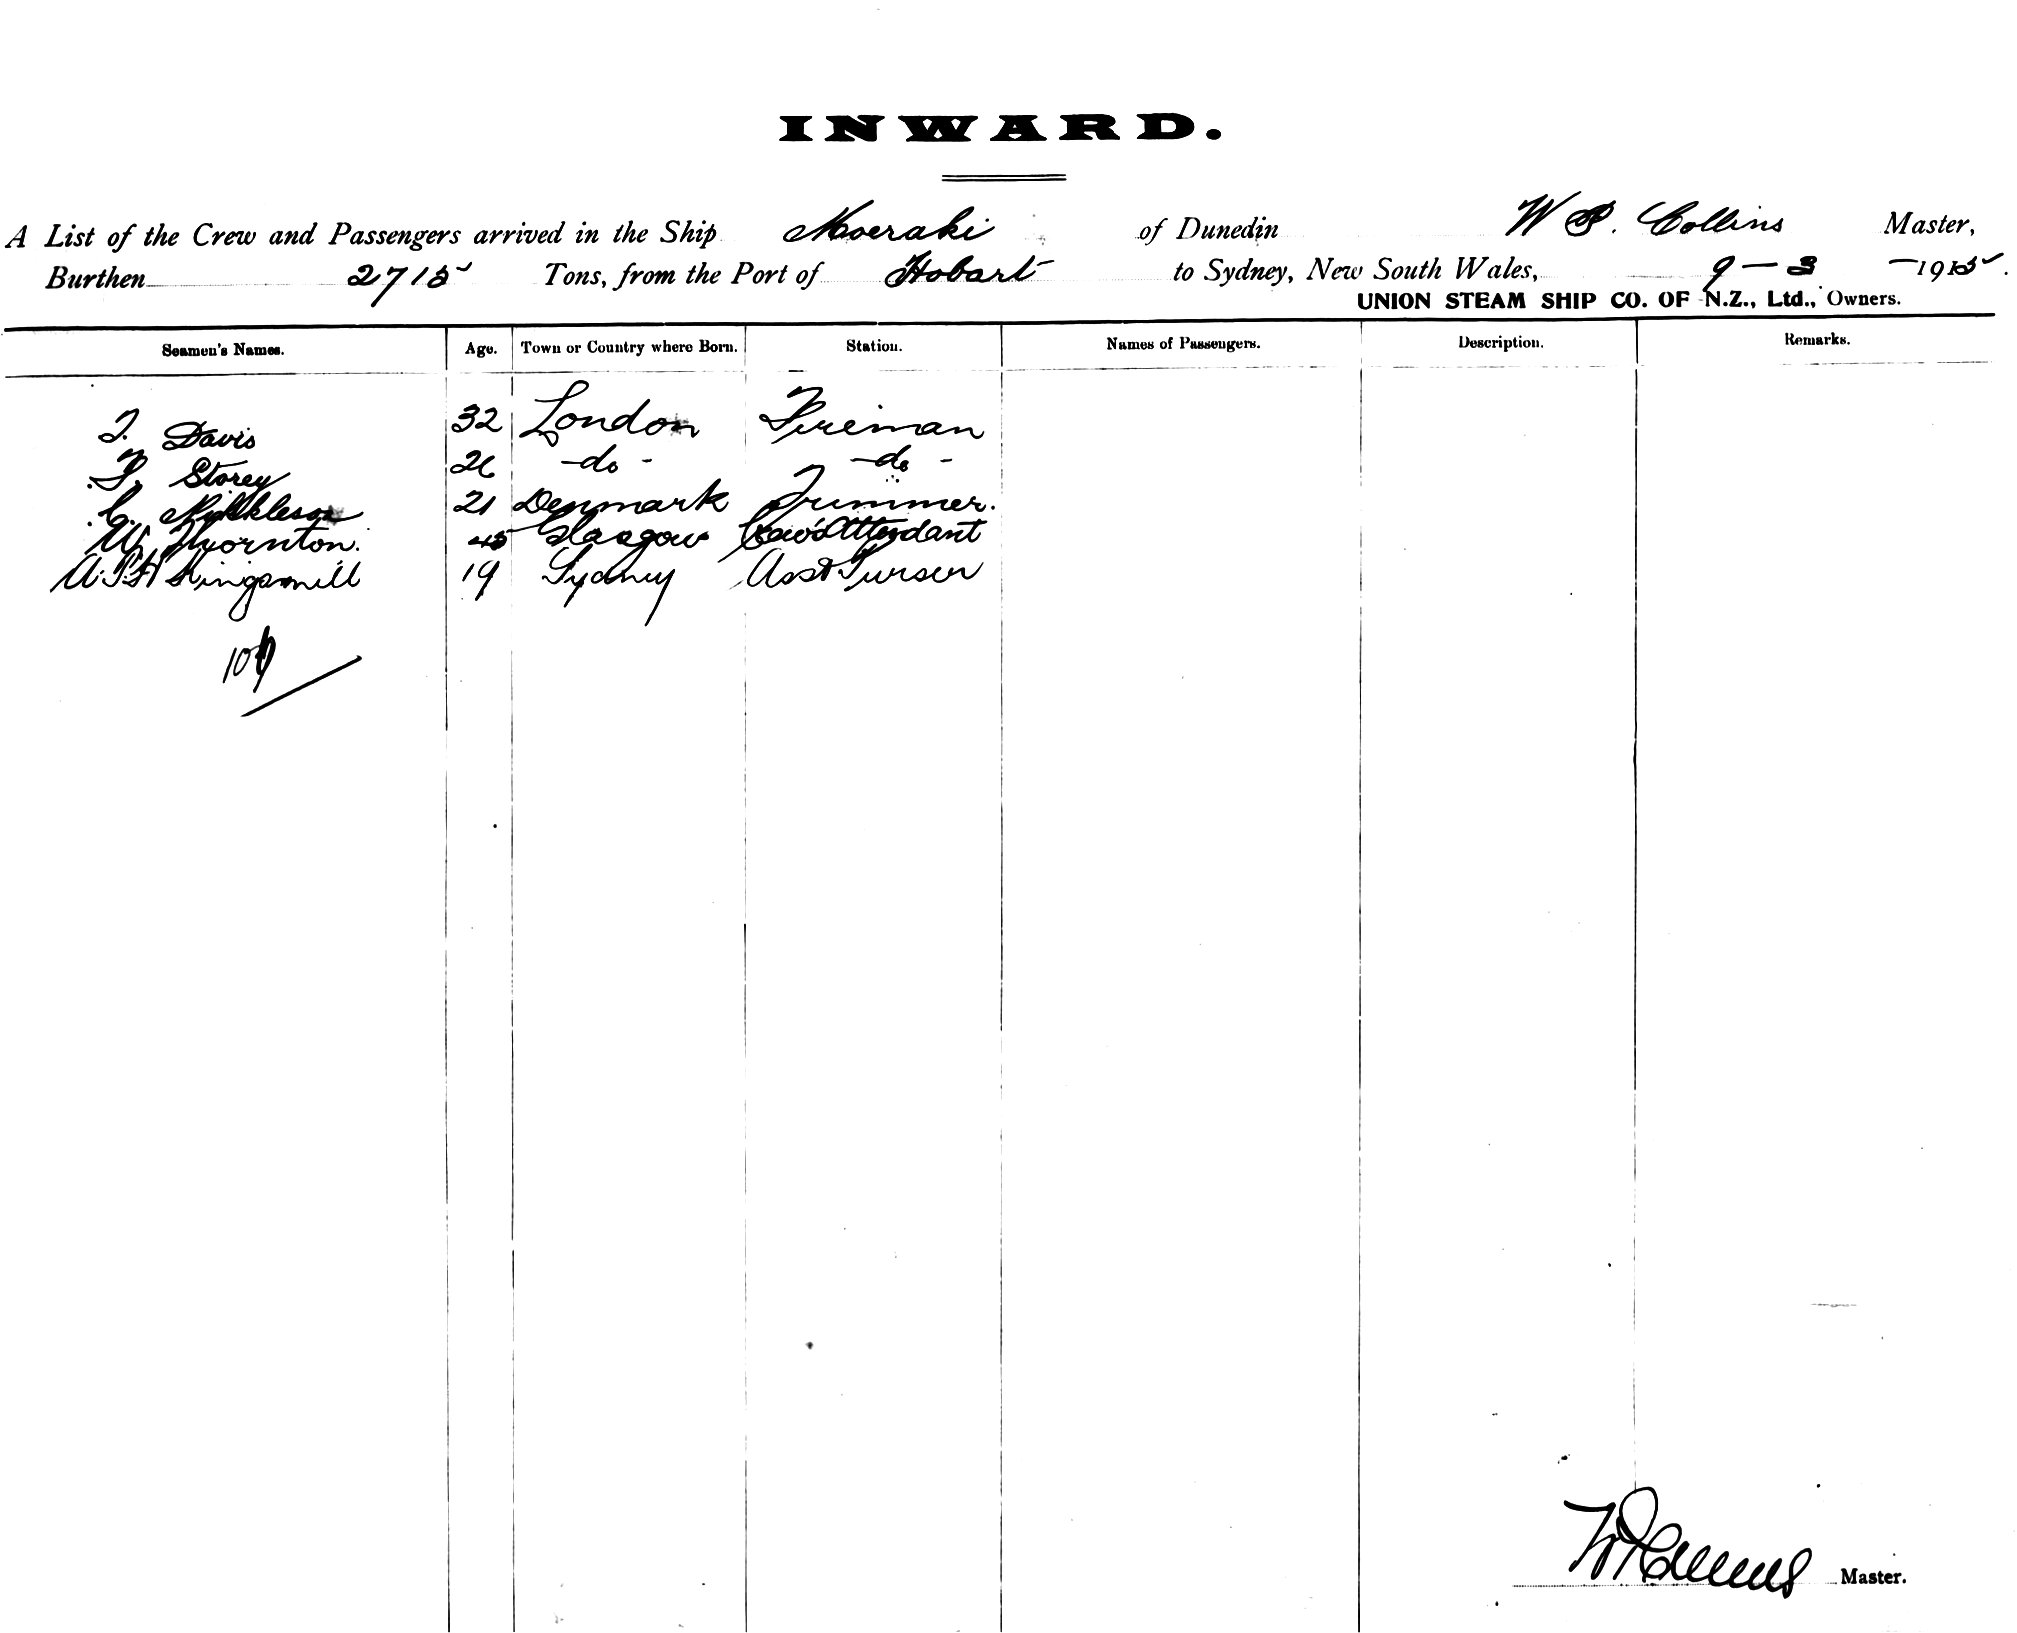 INWARD.
A List of the Crew and Passengers arrived in the Ship Moeraki of Dunedin W P. Collins Master,
Burthen 2715 Tons, from the Port of Hobart to Sydney, New South Wales, 9 - 3 - 1915.
UNION STEAM SHIP CO. OF N.Z., Ltd., Owners.
Seamen's Names. Age. Town or Country where Born. Station. Names of Passengers. Description. Remarks.
T. Davis 32 London Fireman
F. Storey 26 -do- -do-
C. 21 Denmark Trimmer.
W. Thornton. 45 Glasgow Cows Attendant
A. P. H Kingsmill 19 Sydney Asst Purser
Master.